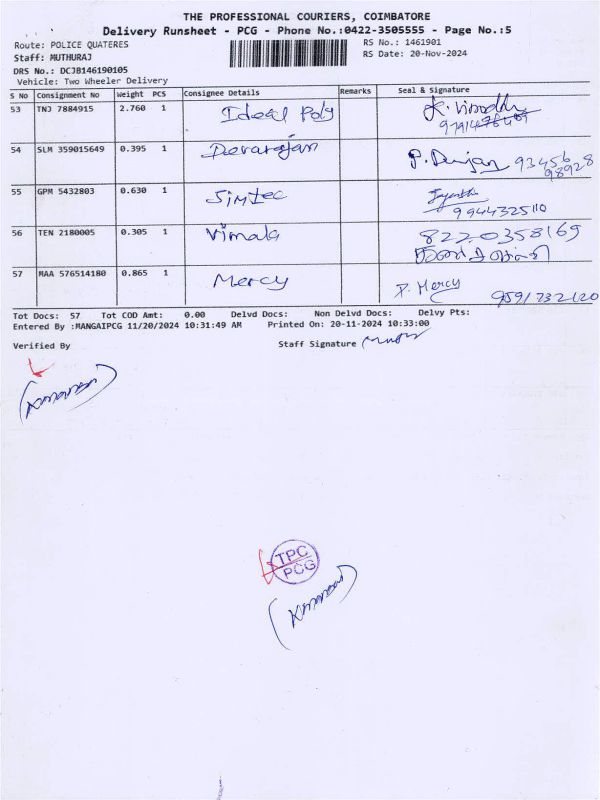 THE PROFESSIONAL COURIERS, COIMBATORE
Delivery Runsheet - PCG - Phone No.:0422-3505555 - Page No.:5
Route: POLICE QUATERES
RS No.: 1461901
Staff: MUTHURAJ
RS Date: 20-Nov-2024
DRS No.: DCJB146190105
Vehicle: Two Wheeler Delivery
S No Consignment No Weight PCS Consignee Details Remarks Seal & Signature
53 TNJ 7884915 2.760 1 Ideal Poly
54 SLM 359015649 0.395 1 Devarajan 93456
98928
55 GPM 5432803 0.630 1 Simtec
9944325110
56 TEN 2180005 0.305 1 Vimala 8220358169
57 MAA 576514180 0.865 1 Mercy P. Mercy 9591732120
Tot Docs: 57 Tot COD Amt: 0.00 Delvd Docs: Non Delvd Docs: Delvy Pts:
Entered By :MANGAIPCG 11/20/2024 10:31:49 AM Printed On: 20-11-2024 10:33:00
Verified By Staff Signature
TPC
PCG